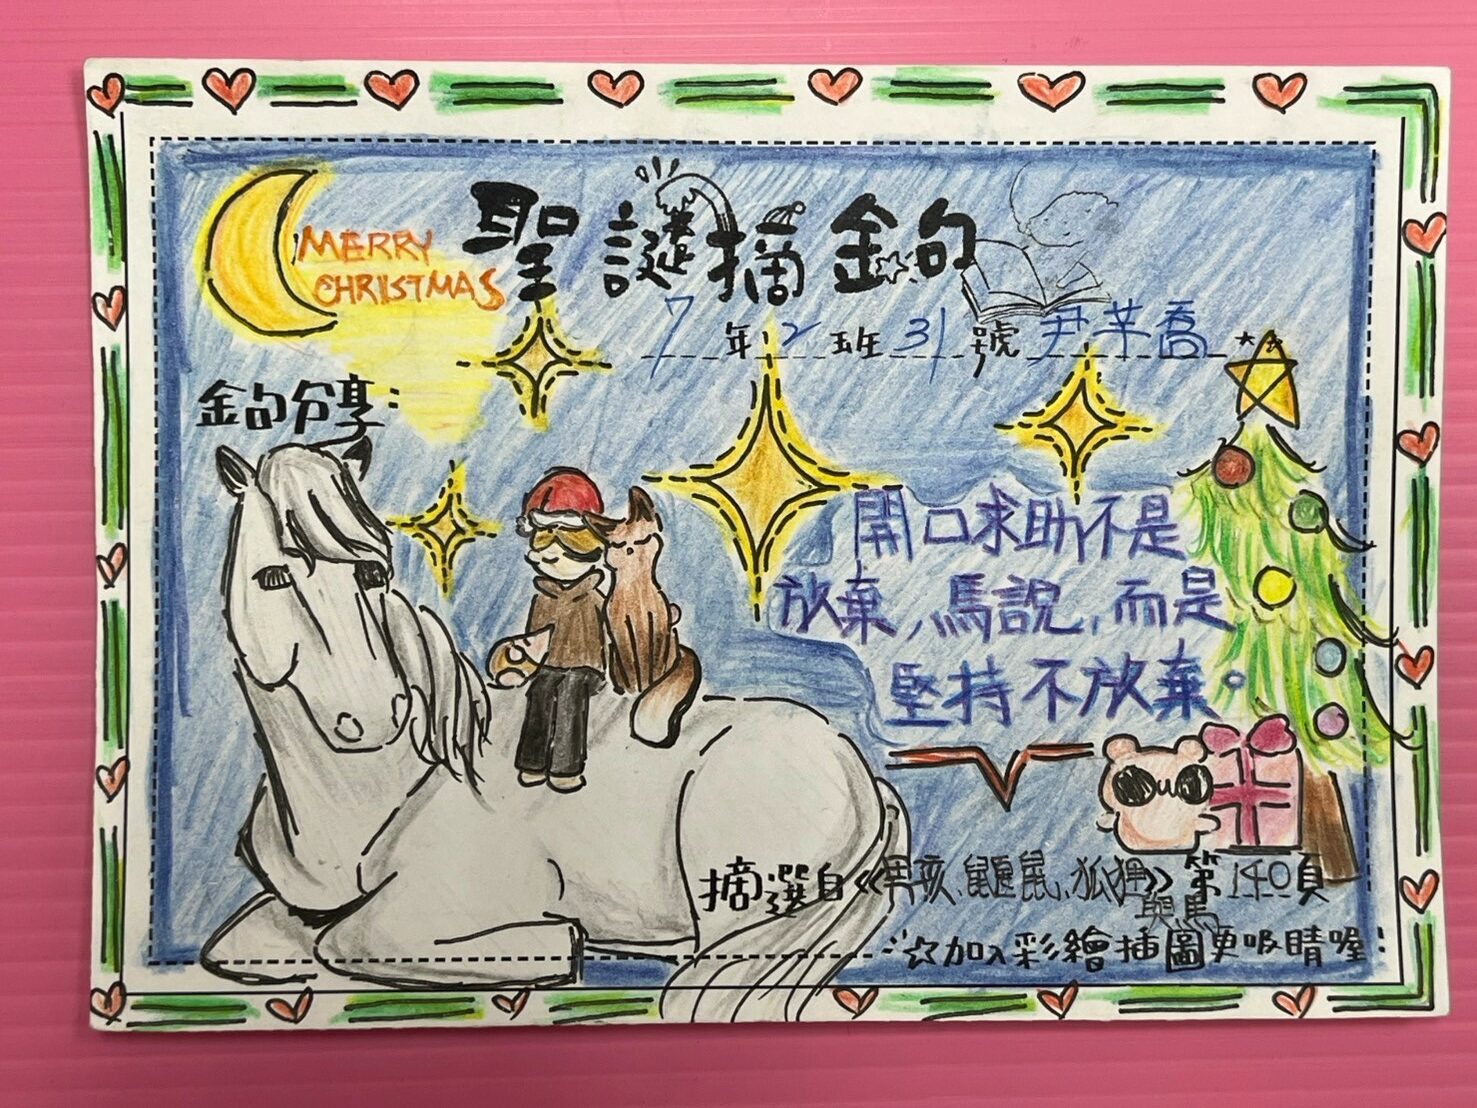 MERRY
CHRISTMAS
聖誕摘金句
7年2班31號 尹芊喬
金句分享：
開口求助不是
放棄，馬說，而是
堅持不放棄。
摘選自《男孩、鼴鼠、狐狸與馬》第140頁
☆加入彩繪插圖更吸睛喔！